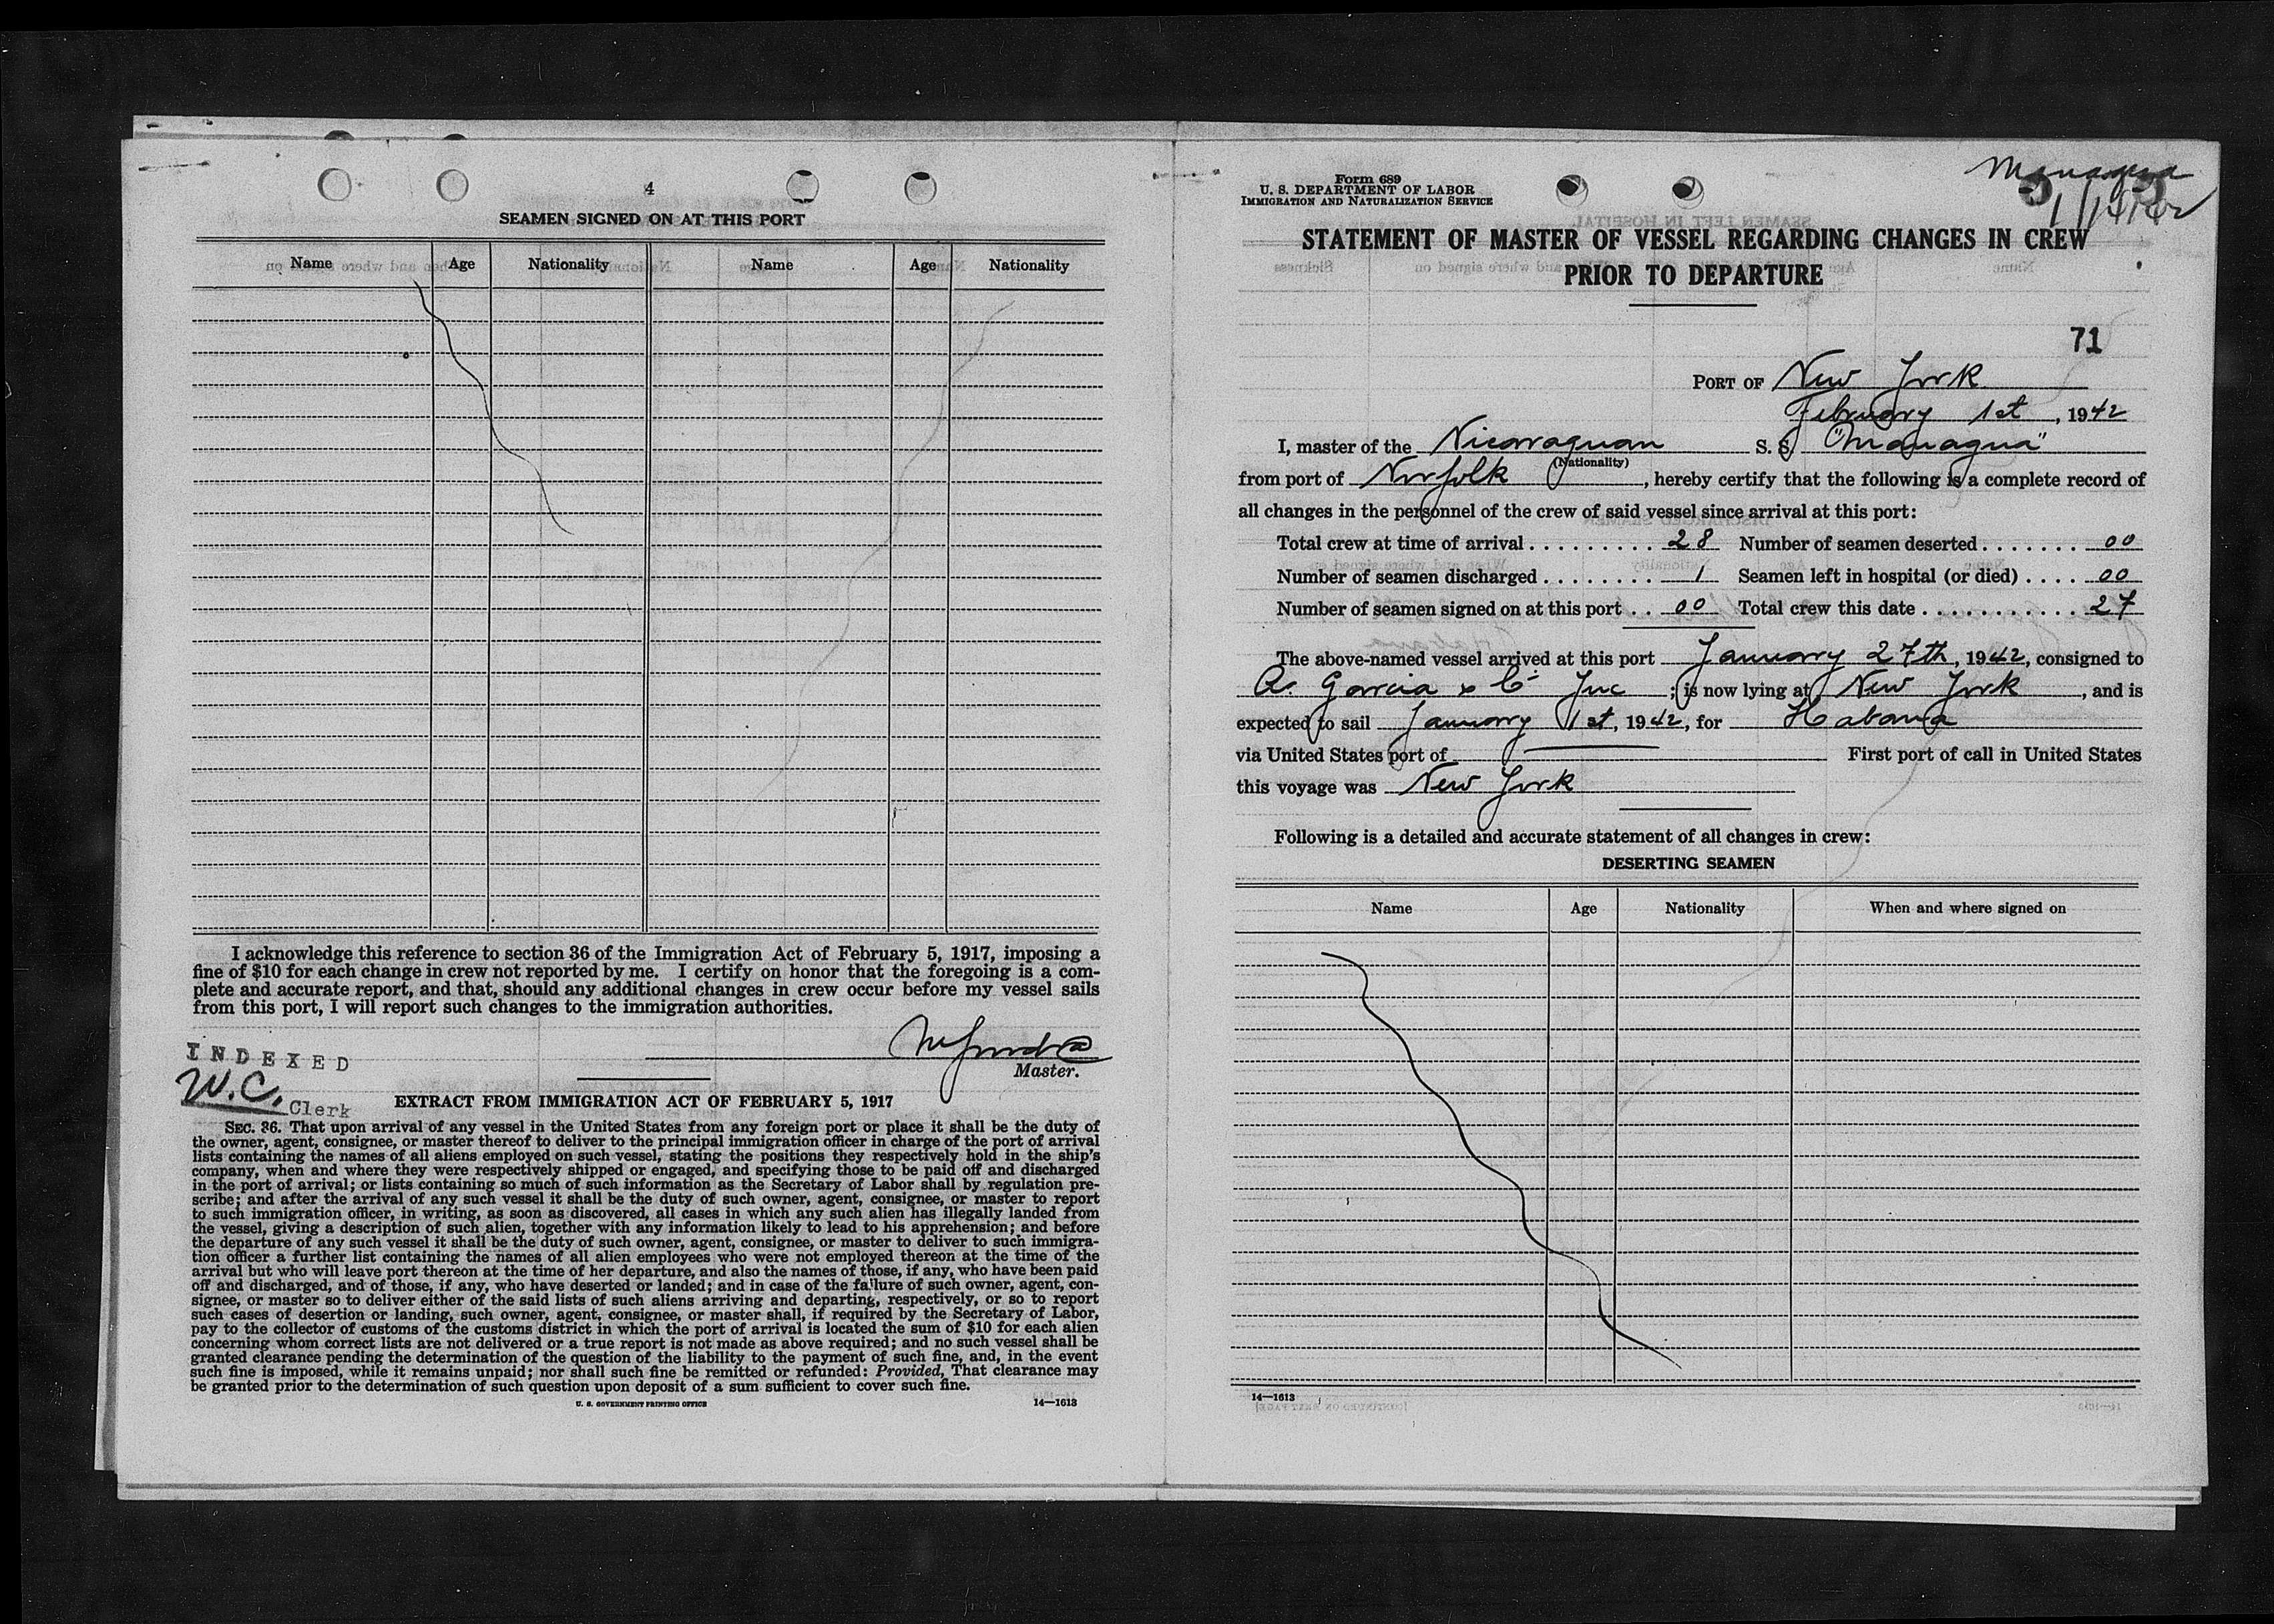 4
SEAMEN SIGNED ON AT THIS PORT
Name Age Nationality Name Age Nationality
I acknowledge this reference to section 36 of the Immigration Act of February 5, 1917, imposing a
fine of $10 for each change in crew not reported by me. I certify on honor that the foregoing is a com-
plete and accurate report, and that, should any additional changes in crew occur before my vessel sails
from this port, I will report such changes to the immigration authorities.
Master.
INDEXED
W.C. Clerk
EXTRACT FROM IMMIGRATION ACT OF FEBRUARY 5, 1917
SEC. 36. That upon arrival of any vessel in the United States from any foreign port or place it shall be the duty of
the owner, agent, consignee, or master thereof to deliver to the principal immigration officer in charge of the port of arrival
lists containing the names of all aliens employed on such vessel, stating the positions they respectively hold in the ship's
company, when and where they were respectively shipped or engaged, and specifying those to be paid off and discharged
in the port of arrival; or lists containing so much of such information as the Secretary of Labor shall by regulation pre-
scribe; and after the arrival of any such vessel it shall be the duty of such owner, agent, consignee, or master to report
to such immigration officer, in writing, as soon as discovered, all cases in which any such alien has illegally landed from
the vessel, giving a description of such alien, together with any information likely to lead to his apprehension; and before
the departure of any such vessel it shall be the duty of such owner, agent, consignee, or master to deliver to such immigra-
tion officer a further list containing the names of all alien employees who were not employed thereon at the time of the
arrival but who will leave port thereon at the time of her departure, and also the names of those, if any, who have been paid
off and discharged, and of those, if any, who have deserted or landed; and in case of the failure of such owner, agent, con-
signee, or master so to deliver either of the said lists of such aliens arriving and departing, respectively, or so to report
such cases of desertion or landing, such owner, agent, consignee, or master shall, if required by the Secretary of Labor,
pay to the collector of customs of the customs district in which the port of arrival is located the sum of $10 for each alien
concerning whom correct lists are not delivered or a true report is not made as above required; and no such vessel shall be
granted clearance pending the determination of the question of the liability to the payment of such fine, and, in the event
such fine is imposed, while it remains unpaid; nor shall such fine be remitted or refunded: Provided, That clearance may
be granted prior to the determination of such question upon deposit of a sum sufficient to cover such fine.
U. S. GOVERNMENT PRINTING OFFICE 14—1613
Form 689
U. S. DEPARTMENT OF LABOR
IMMIGRATION AND NATURALIZATION SERVICE
Managua
1/14/42
STATEMENT OF MASTER OF VESSEL REGARDING CHANGES IN CREW
PRIOR TO DEPARTURE
71
PORT OF New York
February 1st, 1942
I, master of the Nicaraguan S. S. "Managua"
(Nationality)
from port of Norfolk, hereby certify that the following is a complete record of
all changes in the personnel of the crew of said vessel since arrival at this port:
Total crew at time of arrival......... 28 Number of seamen deserted....... 00
Number of seamen discharged........ 1 Seamen left in hospital (or died).... 00
Number of seamen signed on at this port.. 00 Total crew this date............ 27
The above-named vessel arrived at this port January 27th, 1942, consigned to
A. Garcia & Cº Inc; is now lying at New York, and is
expected to sail January 1st, 1942, for Habana
via United States port of First port of call in United States
this voyage was New York
Following is a detailed and accurate statement of all changes in crew:
DESERTING SEAMEN
Name Age Nationality When and where signed on
14—1613